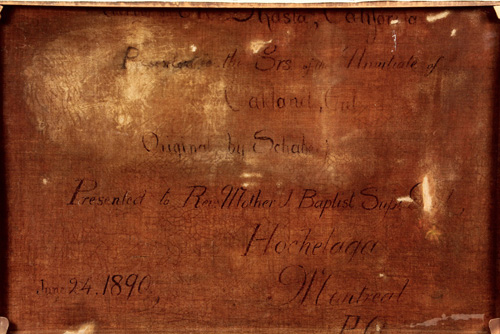 Shasta, California
Presented to the Srs of the
Oakland, Cal
Original by
Presented to Rev. Mother J Baptist Supr
Hochelaga
June 24, 1890, Montreal
P.Q.